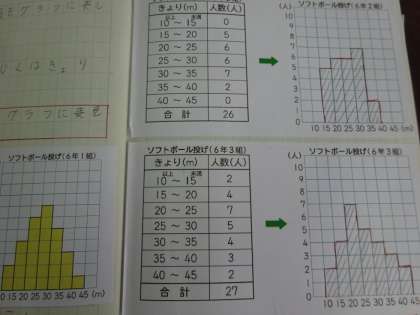 きょり(m) 人数(人)
以上 未満
10 ～ 15 0
15 ～ 20 5
20 ～ 25 6
25 ～ 30 6
30 ～ 35 7
35 ～ 40 2
40 ～ 45 0
合計 26
ソフトボール投げ(6年2組)
(人)
10
9
8
7
6
5
4
3
2
1
0
10 15 20 25 30 35 40 45 (m)
グラフに表
ソフトボール投げ(6年1組)
10 15 20 25 30 35 40 45 (m)
ソフトボール投げ(6年3組)
きょり(m) 人数(人)
以上 未満
10 ～ 15 2
15 ～ 20 4
20 ～ 25 7
25 ～ 30 5
30 ～ 35 4
35 ～ 40 3
40 ～ 45 2
合計 27
ソフトボール投げ(6年3組)
(人)
10
9
8
7
6
5
4
3
2
1
0
10 15 20 25 30 35 40 45 (m)